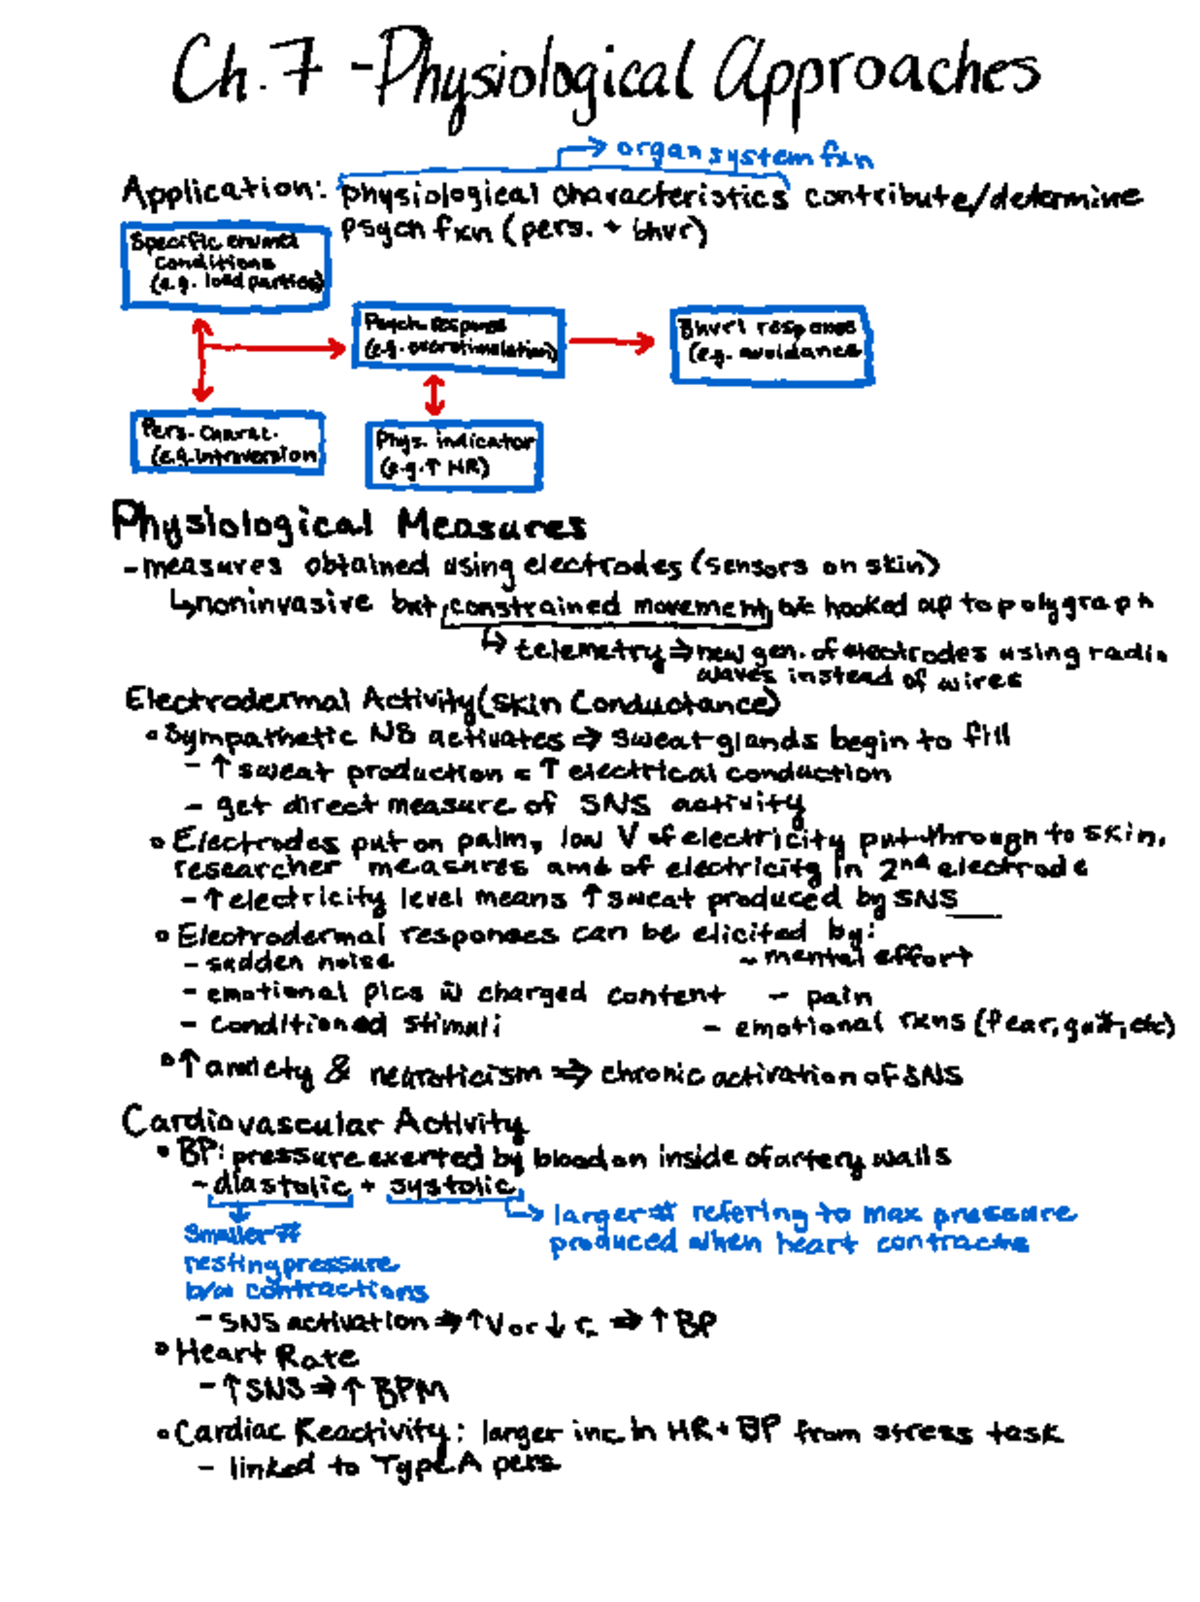 Ch. 7 - Physiological Approaches
→ organ system fxn
Application: physiological characteristics contribute/determine
psych fxn (pers. + bhvr)
Specific envmnt
conditions
(e.g. loud parties)
Psych. response
(e.g. overstimulation)
Bhvrl response
(e.g. avoidance
Pers. charac.
(e.g. introversion
Phys. indicator
(e.g. ↑ HR)
Physiological Measures
- measures obtained using electrodes (sensors on skin)
↳ noninvasive but constrained movement b/c hooked up to polygraph
↳ telemetry ⇒ new gen. of electrodes using radio
waves instead of wires
Electrodermal Activity (Skin Conductance)
• Sympathetic NS activates ⇒ sweat glands begin to fill
- ↑ sweat production = ↑ electrical conduction
- get direct measure of SNS activity
• Electrodes put on palm, low V of electricity put through to skin,
researcher measures amt of electricity in 2nd electrode
- ↑ electricity level means ↑ sweat produced by SNS
• Electrodermal responses can be elicited by:
- sudden noise
- mental effort
- emotional pics w charged content
- pain
- conditioned stimuli
- emotional rxns (fear, guilt, etc)
• ↑ anxiety & neuroticism ⇒ chronic activation of SNS
Cardiovascular Activity
• BP: pressure exerted by blood on inside of artery walls
- diastolic + systolic
↳ larger # refering to max pressure
produced when heart contracts
smaller #
resting pressure
b/w contractions
- SNS activation ⇒ ↑ V or ↓ r ⇒ ↑ BP
• Heart Rate
- ↑ SNS ⇒ ↑ BPM
• Cardiac Reactivity: larger inc in HR + BP from stress task
- linked to Type A pers